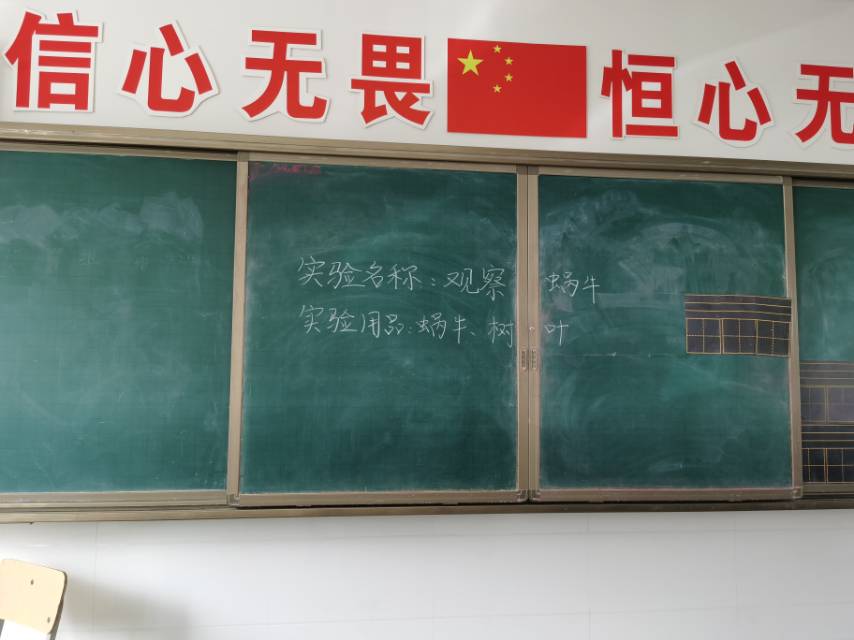 信心无畏 恒心无
实验名称:观察 蜗牛
实验用品:蜗牛、树叶